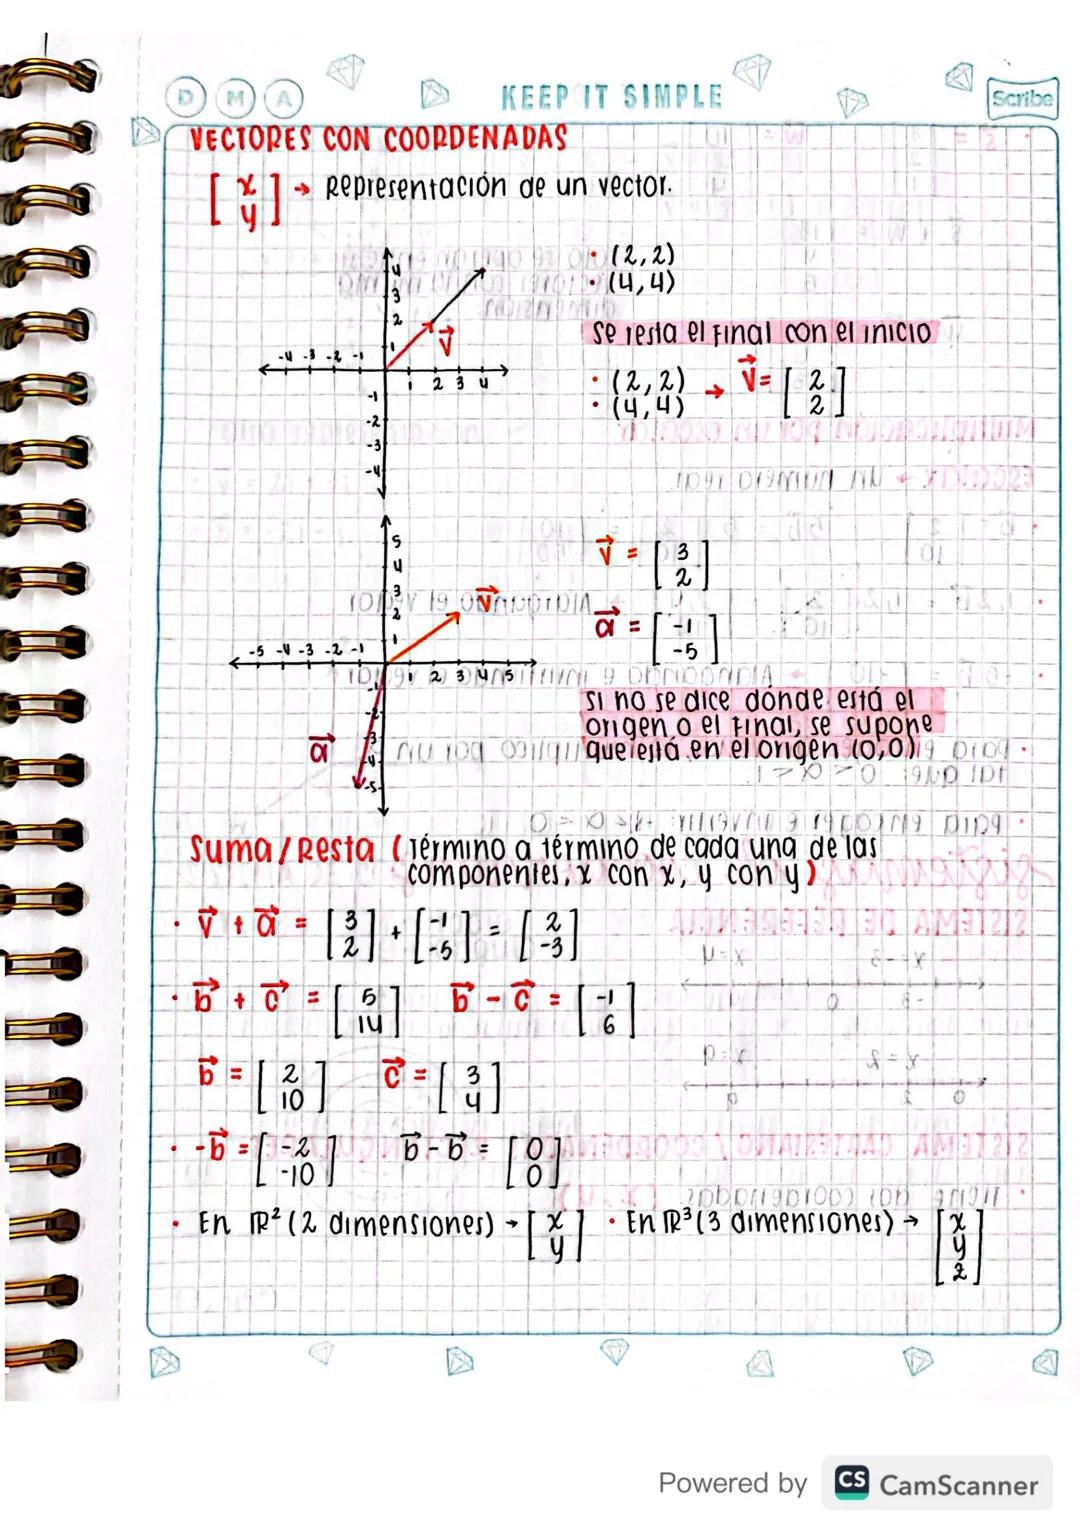 D M A
KEEP IT SIMPLE
Scribe
VECTORES CON COORDENADAS
[x y] → Representación de un vector.
4
3
2
1
-4 -3 -2 -1
1 2 3 4
-1
-2
-3
-4
v
• (2,2)
• (4,4)
Se resta el final con el inicio
• (2,2) → v = [2 2]
• (4,4)
5
4
3
2
1
-5 -4 -3 -2 -1
1 2 3 4 5
-1
-2
-3
-4
-5
v
a
v = [3 2]
a = [-1 -5]
si no se dice donde está el
origen o el final, se supone
que está en el origen (0,0)
Suma/Resta (Término a término de cada una de las
componentes, x con x, y con y)
• v + a = [3 2] + [-1 -5] = [2 -3]
• b + c = [5 14] b - c = [-1 6]
b = [2 10] c = [3 4]
• -b = [-2 -10] b - b = [0 0]
• En ℝ² (2 dimensiones) → [x y] • En ℝ³ (3 dimensiones) → [x y z]
Powered by CS CamScanner